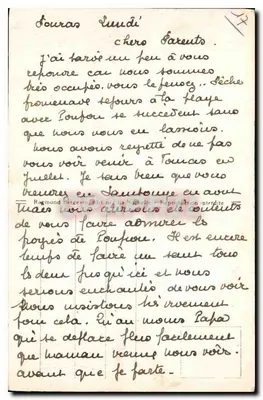 Fouras Lundi
chers Parents.
J'ai tardé un peu à vous
repondre car nous sommes
très occupés, vous le pensez. Pêche
promenade sejours à la plage
avec Poupon se succèdent sans
que nous nous en lassions.
Nous avons regretté de ne pas
vous voir venir à Fouras en
Juillet. Je sais bien que vous
viendrez en août
Mais nous aurions été contents
de vous faire admirer les
progrès de Poupon. Il est encore
temps de faire un saut tous
les deux jusqu'ici et nous
serions enchantés de vous voir
Nous insistons
pour cela. Qu'au moins Papa
qui se deplace plus facilement
que maman vienne nous voir
avant que je parte.